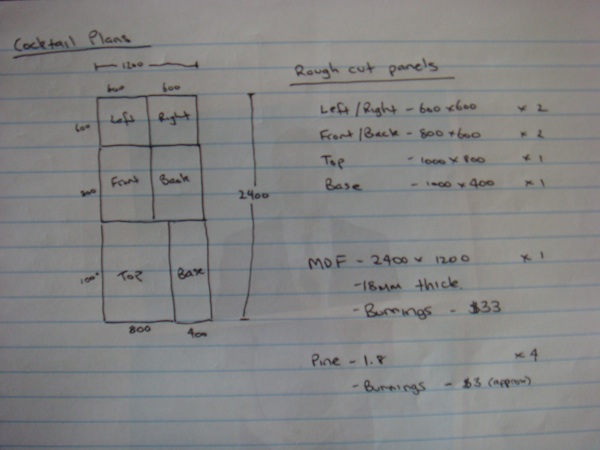 Cocktail Plans
1200
600 600
600 Left Right
800 Front Back
2400
1000 Top Base
800 400
Rough cut panels
Left/Right - 600 x 600 x 2
Front/Back - 800 x 600 x 2
Top - 1000 x 800 x 1
Base - 1000 x 400 x 1
MDF - 2400 x 1200 x 1
- 18MM thick.
- Bunnings - $33
Pine - 1.8 x 4
- Bunnings - $3 (approx)